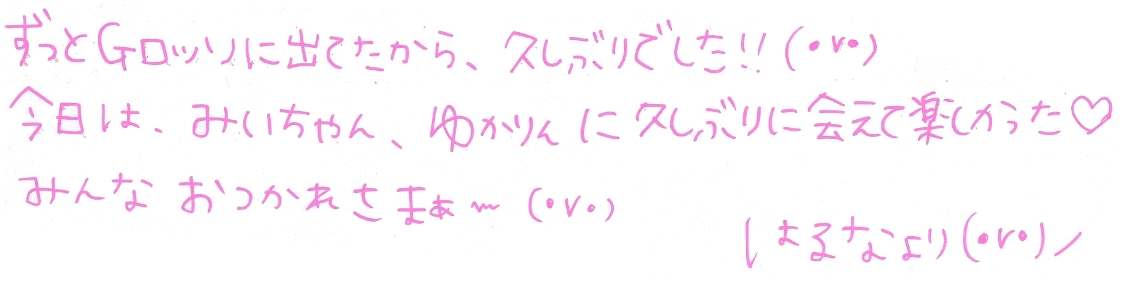 ずっとGロッソに出てたから、久しぶりでした!! (・v・)
今日は、みいちゃん、ゆかりんに久しぶりに会えて楽しかった♡
みんな おつかれさまぁ〜 (・v・)
はるなより(・v・)ノ